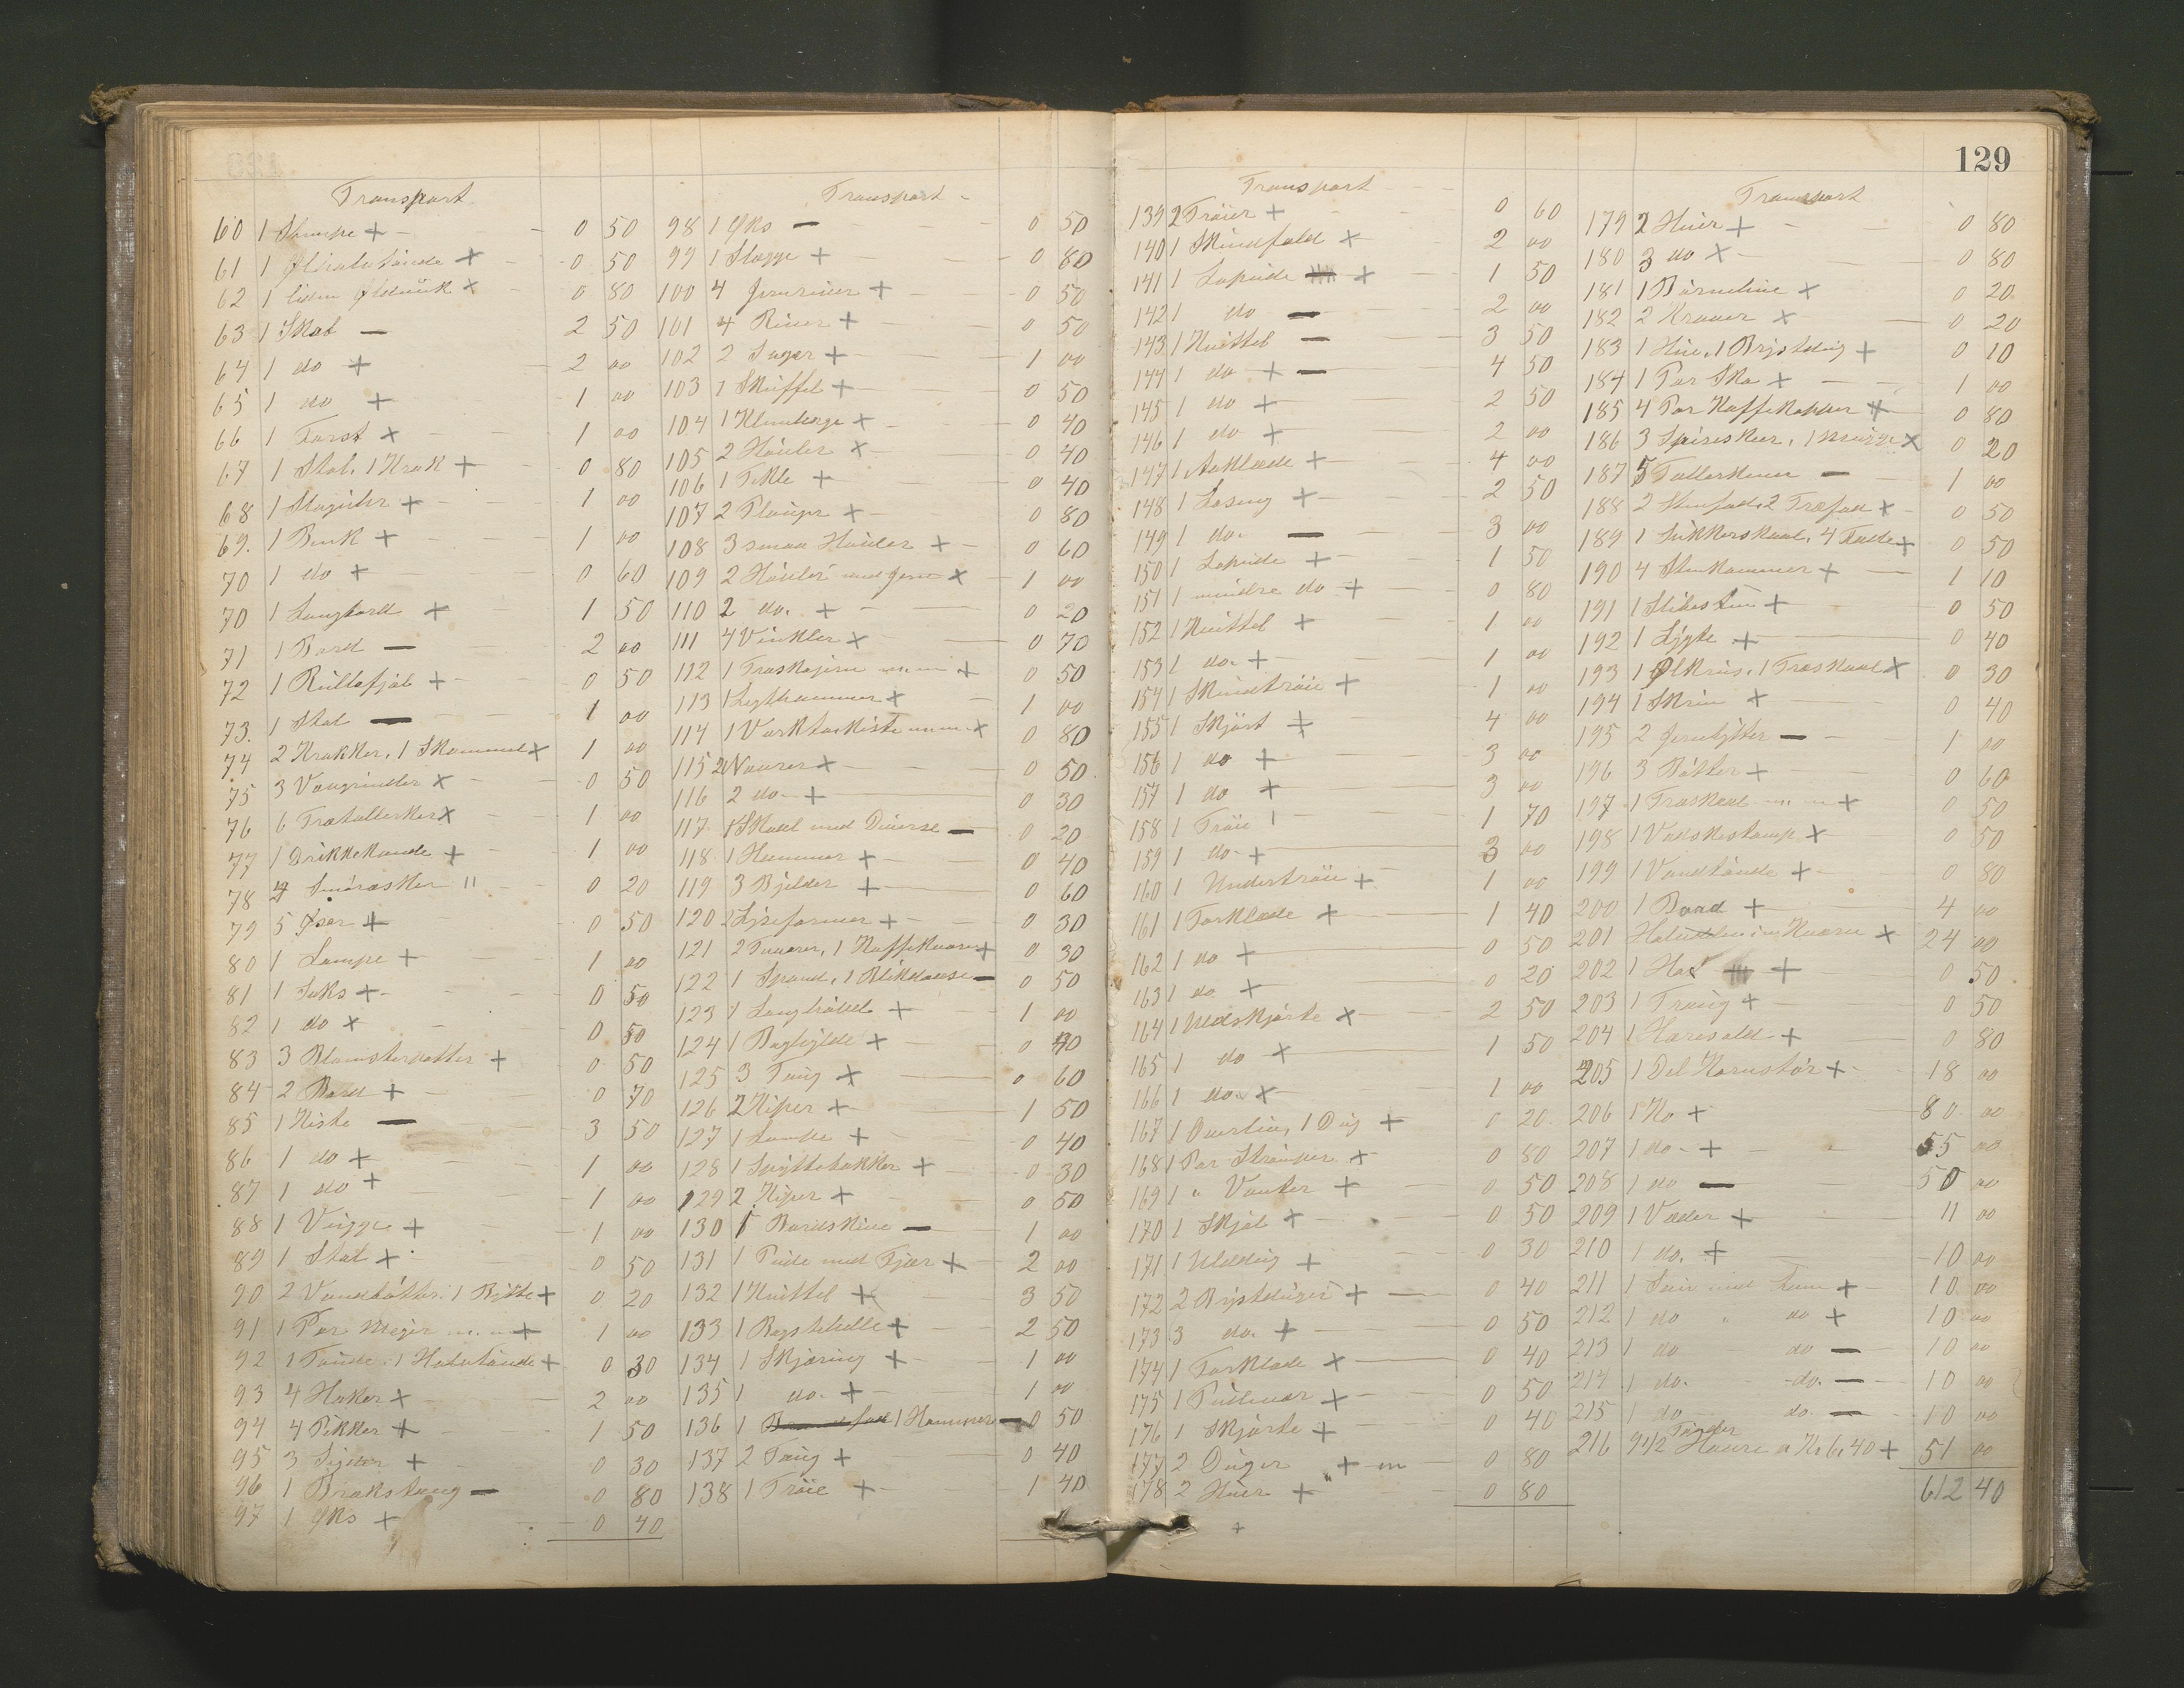 129
Transport
60 1 Stampe + 0 50
61 1 Halvtønde × 0 50
62 1 liden × 0 80
63 1 Skab — 2 50
64 1 do + 2 00
65 1 do + 1 00
66 1 × 1 00
67 1 Stol, 1 Krak + 0 80
68 1 + 1 00
69. 1 Benk + 1 00
70 1 do + 0 60
70 1 Langbord + 1 50
71 1 Bord — 2 00
72 1 Rullefjøl + 0 50
73. 1 Stol — 1 00
74 2 Krakker, 1 Skammel × 1 00
75 3 Vevgrinder × 0 50
76 6 Trætallerker × 1 00
77 1 Drikkekande + 1 00
78 4 Smøræsker " 0 20
79 5 Øser + 0 50
80 1 Lampe + 1 00
81 1 Saks + 0 50
82 1 do × 0 50
83 3 Blomsterpotter + 0 50
84 2 Bord + 0 70
85 1 Kiste — 3 50
86 1 do + 1 00
87 1 do + 1 00
88 1 Vugge + 1 00
89 1 Stol × 0 50
90 2 Vandbøtter, 1 Bøtte + 0 20
91 1 Par Meger m. m + 1 00
92 1 Tønde, 1 Halvtønde + 0 30
93 4 Haker × 2 00
94 4 Pikker + 1 50
95 3 Sigder + 0 30
96 1 Brækstang — 0 80
97 1 Øks + 0 40
Transport
98 1 Øks — 0 50
99 1 Slægge + 0 80
100 4 Jernriver + 0 50
101 4 River + 0 50
102 2 Sager + 1 00
103 1 Skuffel + 0 50
104 1 × 0 40
105 2 Høvler × 0 40
106 1 + 0 40
107 2 Plouger × 0 80
108 3 smaa Høvler + 0 60
109 2 Høvler med Jern × 1 00
110 2 do. + 0 20
111 4 Vinkler × 0 70
112 1 m. m + 0 50
113 1 × 1 00
114 1 m. m. × 0 80
115 2 Navarer × 0 50
116 2 do. + 0 30
117 1 Skaal med Diverse — 0 20
118 1 Hammer + 0 40
119 3 Bjelder + 0 60
120 2 Lyseformer + 0 30
121 2 1 Kaffekværn + 0 30
122 1 Spand, 1 Blikdaase — 0 50
123 1 Langhøvel + 1 00
124 1 × 0 40
125 3 Traug × 0 60
126 2 Kiper + 1 50
127 1 + 0 40
128 1 + 0 30
129 2 Kiper + 0 50
130 1 Bordskive — 1 00
131 1 Pude med Fjær + 2 00
132 1 Kvittel × 3 50
133 1 + 2 50
134 1 Skjæring + 1 00
135 1 do. + 1 00
136 1 1 Hammer — 0 50
137 2 Traug + 0 40
138 1 Trøie + 1 40
Transport
139 2 Trøier + 0 60
140 1 Skindfeld × 2 00
141 1 × 1 50
142 1 do — 2 00
143 1 Kvittel — 3 50
144 1 do + — 4 50
145 1 do + 2 50
146 1 do + 2 00
147 1 Aaklæde + 4 00
148 1 + 2 50
149 1 do. — 3 00
150 1 + 1 50
151 1 mindre do + 0 80
152 1 Kvittel + 1 00
153 1 do. + 1 00
154 1 Skindtrøie + 1 00
155 1 Skjørt + 4 00
156 1 do + 3 00
157 1 do + 3 00
158 1 Trøie 1 1 70
159 1 do. + 3 00
160 1 Undertrøie + 1 00
161 1 Forklæde + 1 40
162 1 do + 0 50
163 1 do + 0 20
164 1 Uldskjorte × 2 50
165 1 do × 1 50
166 1 do. × 1 00
167 1 1 Dug + 0 20
168 1 Par Strømper × 0 80
169 1 " Vanter + 0 50
170 1 × 0 50
171 1 Ulddug + 0 30
172 2 Brystduger + 0 40
173 3 do. + 0 50
174 1 Forklæde × 0 40
175 1 Pudevar × 0 50
176 1 Skjorte + 0 40
177 2 Duger + 0 80
178 2 Huer + 0 80
+
Transport
179 2 Huer + 0 80
180 3 do × 0 80
181 1 Børnehue × 0 20
182 2 Kraver × 0 20
183 1 Hue, 1 Brystdug + 0 10
184 1 Par Sko × 1 00
185 4 Par Kaffekopper + 0 80
186 3 Spiseskeer, 1 Mugge × 0 20
187 5 Tallerkener — 1 00
188 2 Stenfade, 2 Træfad × 0 50
189 1 Sukkerskaal, 4 + 0 50
190 4 Stenkummer + 1 10
191 1 + 0 50
192 1 Lygte + 0 40
193 1 Ølkrus, 1 Træskaal × 0 30
194 1 Skrin × 0 40
195 2 Jerngryter — 1 00
196 3 Bøtter + 0 60
197 1 Træskaal m. m + 0 50
198 1 Vadskestamp × 0 50
199 1 Vandtønde + 0 80
200 1 Baad + 4 00
201 Halvdelen i en Kværn × 24 00
202 1 + 0 50
203 1 Traug + 0 50
204 1 Haresold + 0 80
205 1 Del Kornstør + 18 00
206 1 Ko + 80 00
207 1 do. + 55 00
208 1 do — 50 00
209 1 Væder + 11 00
210 1 do. + 10 00
211 1 Sau med Lam + 10 00
212 1 do " do + 10 00
213 1 do do — 10 00
214 1 do. do. — 10 00
215 1 do do — 10 00
216 9 1/2 Tønder Havre a Kr 6,40 + 51 00
612 40